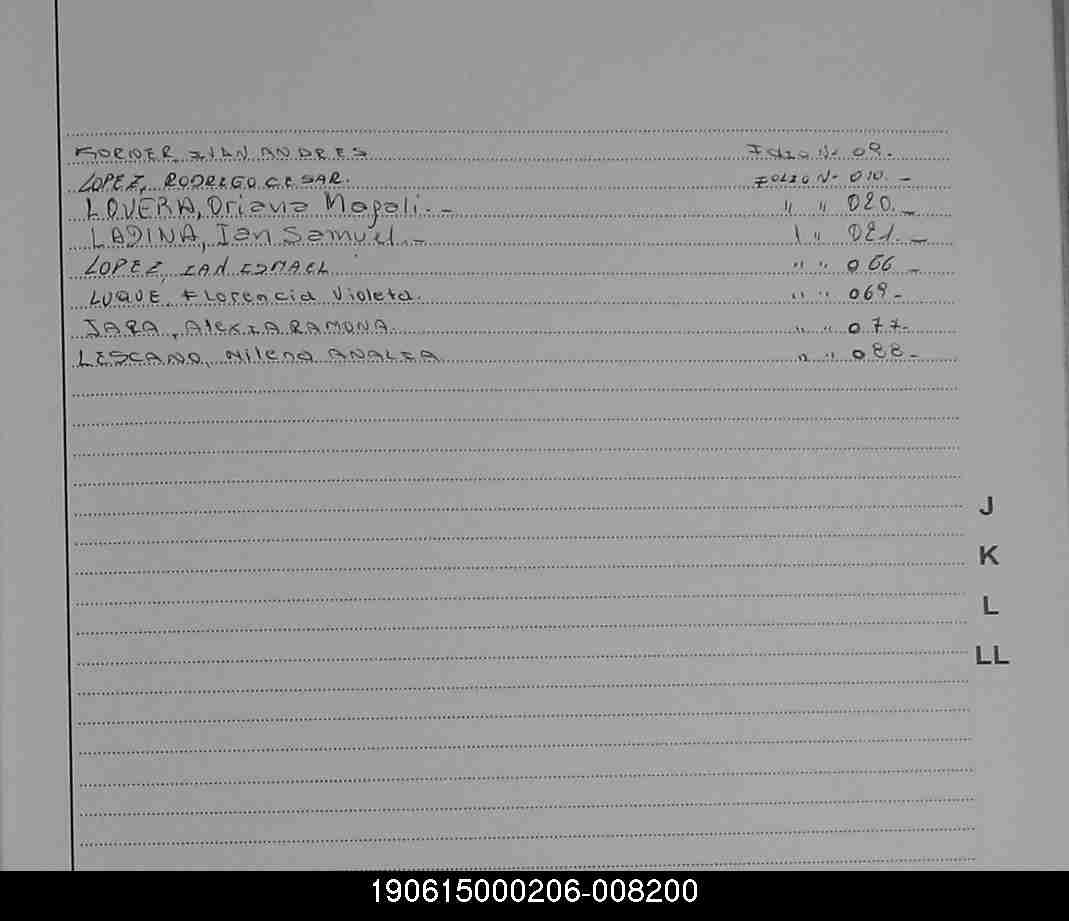 KORNER IVAN ANDRES Folio Nº 09.
LOPEZ, RODRIGO CESAR. FOLIO Nº 010. -
LOVERA, Oriana Magali. - " " 020. -
LADINA, Ian Samuel. - " " 021. -
LOPEZ, IAN ISMAEL " " 066 -
LUQUE, Florencia Violeta. " " 069 -
JARA, Alexia RAMONA. " " 077-
LESCANO, Milena ANALIA " " 088 -
J
K
L
LL
190615000206-008200